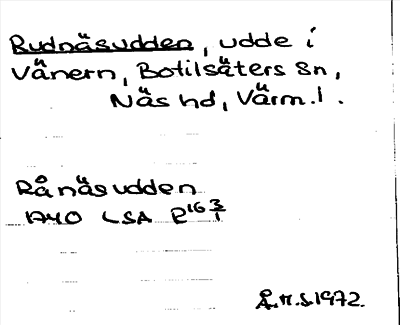 Rudnäsudden, udde i
Vänern, Botilsäters sn,
Näs hd, Värm.l.
Rånäsudden
1740 LSA R16 3/1
Å.H.S.1972.